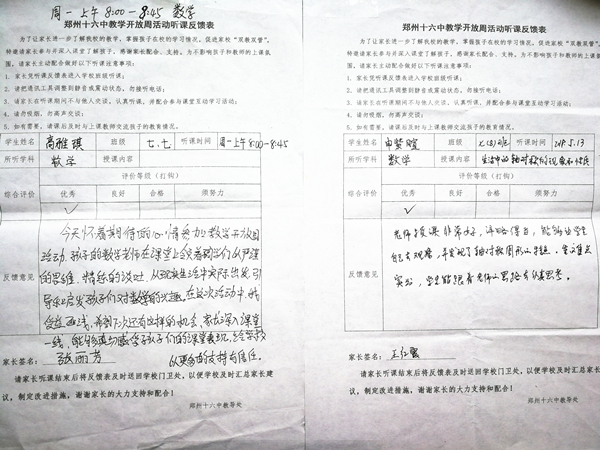 周一上午 8:00-8:45 数学
郑州十六中教学开放周活动听课反馈表
为了让家长进一步了解我校的教学，掌握孩子在校的学习情况，促进家校“双教双管”，
特邀请家长参与并深入课堂了解孩子，感谢家长配合、支持。为不影响孩子和教师的上课氛
围，请家长主动配合做好以下听课注意事项：
1、家长凭听课反馈表进入学校班级听课；
2、请把通讯工具调整到静音或震动状态，勿接听电话；
3、请家长在听课期间不与他人交谈，认真听课，并配合参与课堂互动学习活动；
4、请勿吸烟，勿高声交谈；
5、如有需要，请课后及时与上课教师交流孩子的教育情况。
学生姓名 高雅琪 班级 七.七 听课时间 周一上午8:00-8:45
所听学科 数学 授课内容
综合评价 评价等级（打钩）
优秀 良好 合格 须努力
✓
反馈意见
今天怀着期待的心情参加数学开放周
活动，孩子的数学老师在课堂上
的思维、精练的谈吐，从现实生活中实际出发，引
导和启发孩子们对数学的兴趣。在这次活动中，我
受益匪浅，希望下次还有这样的机会，家长深入课堂
一线，能够真切感受孩子们的课堂表现，给学校
以更多的支持与信任。
家长签名： 张丽芳
请家长听课结束后将反馈表及时送回学校门卫处，以便学校及时汇总家长建
议，制定改进措施，谢谢家长的大力支持和配合！
郑州十六中教导处
郑州十六中教学开放周活动听课反馈表
为了让家长进一步了解我校的教学，掌握孩子在校的学习情况，促进家校“双教双管”，
特邀请家长参与并深入课堂了解孩子，感谢家长配合、支持。为不影响孩子和教师的上课氛
围，请家长主动配合做好以下听课注意事项：
1、家长凭听课反馈表进入学校班级听课；
2、请把通讯工具调整到静音或震动状态，勿接听电话；
3、请家长在听课期间不与他人交谈，认真听课，并配合参与课堂互动学习活动；
4、请勿吸烟，勿高声交谈；
5、如有需要，请课后及时与上课教师交流孩子的教育情况。
学生姓名 班级 七（8）班 听课时间 5.13
所听学科 数学 授课内容 生活中的轴对称
综合评价 评价等级（打钩）
优秀 良好 合格 须努力
✓
反馈意见
老师授课非常好，评略得当，能够让学生
自己去观察，并发现了轴对称图形的特点。重难点
突出，学生能跟着老师的思路去认真思考。
家长签名：
请家长听课结束后将反馈表及时送回学校门卫处，以便学校及时汇总家长建
议，制定改进措施，谢谢家长的大力支持和配合！
郑州十六中教导处